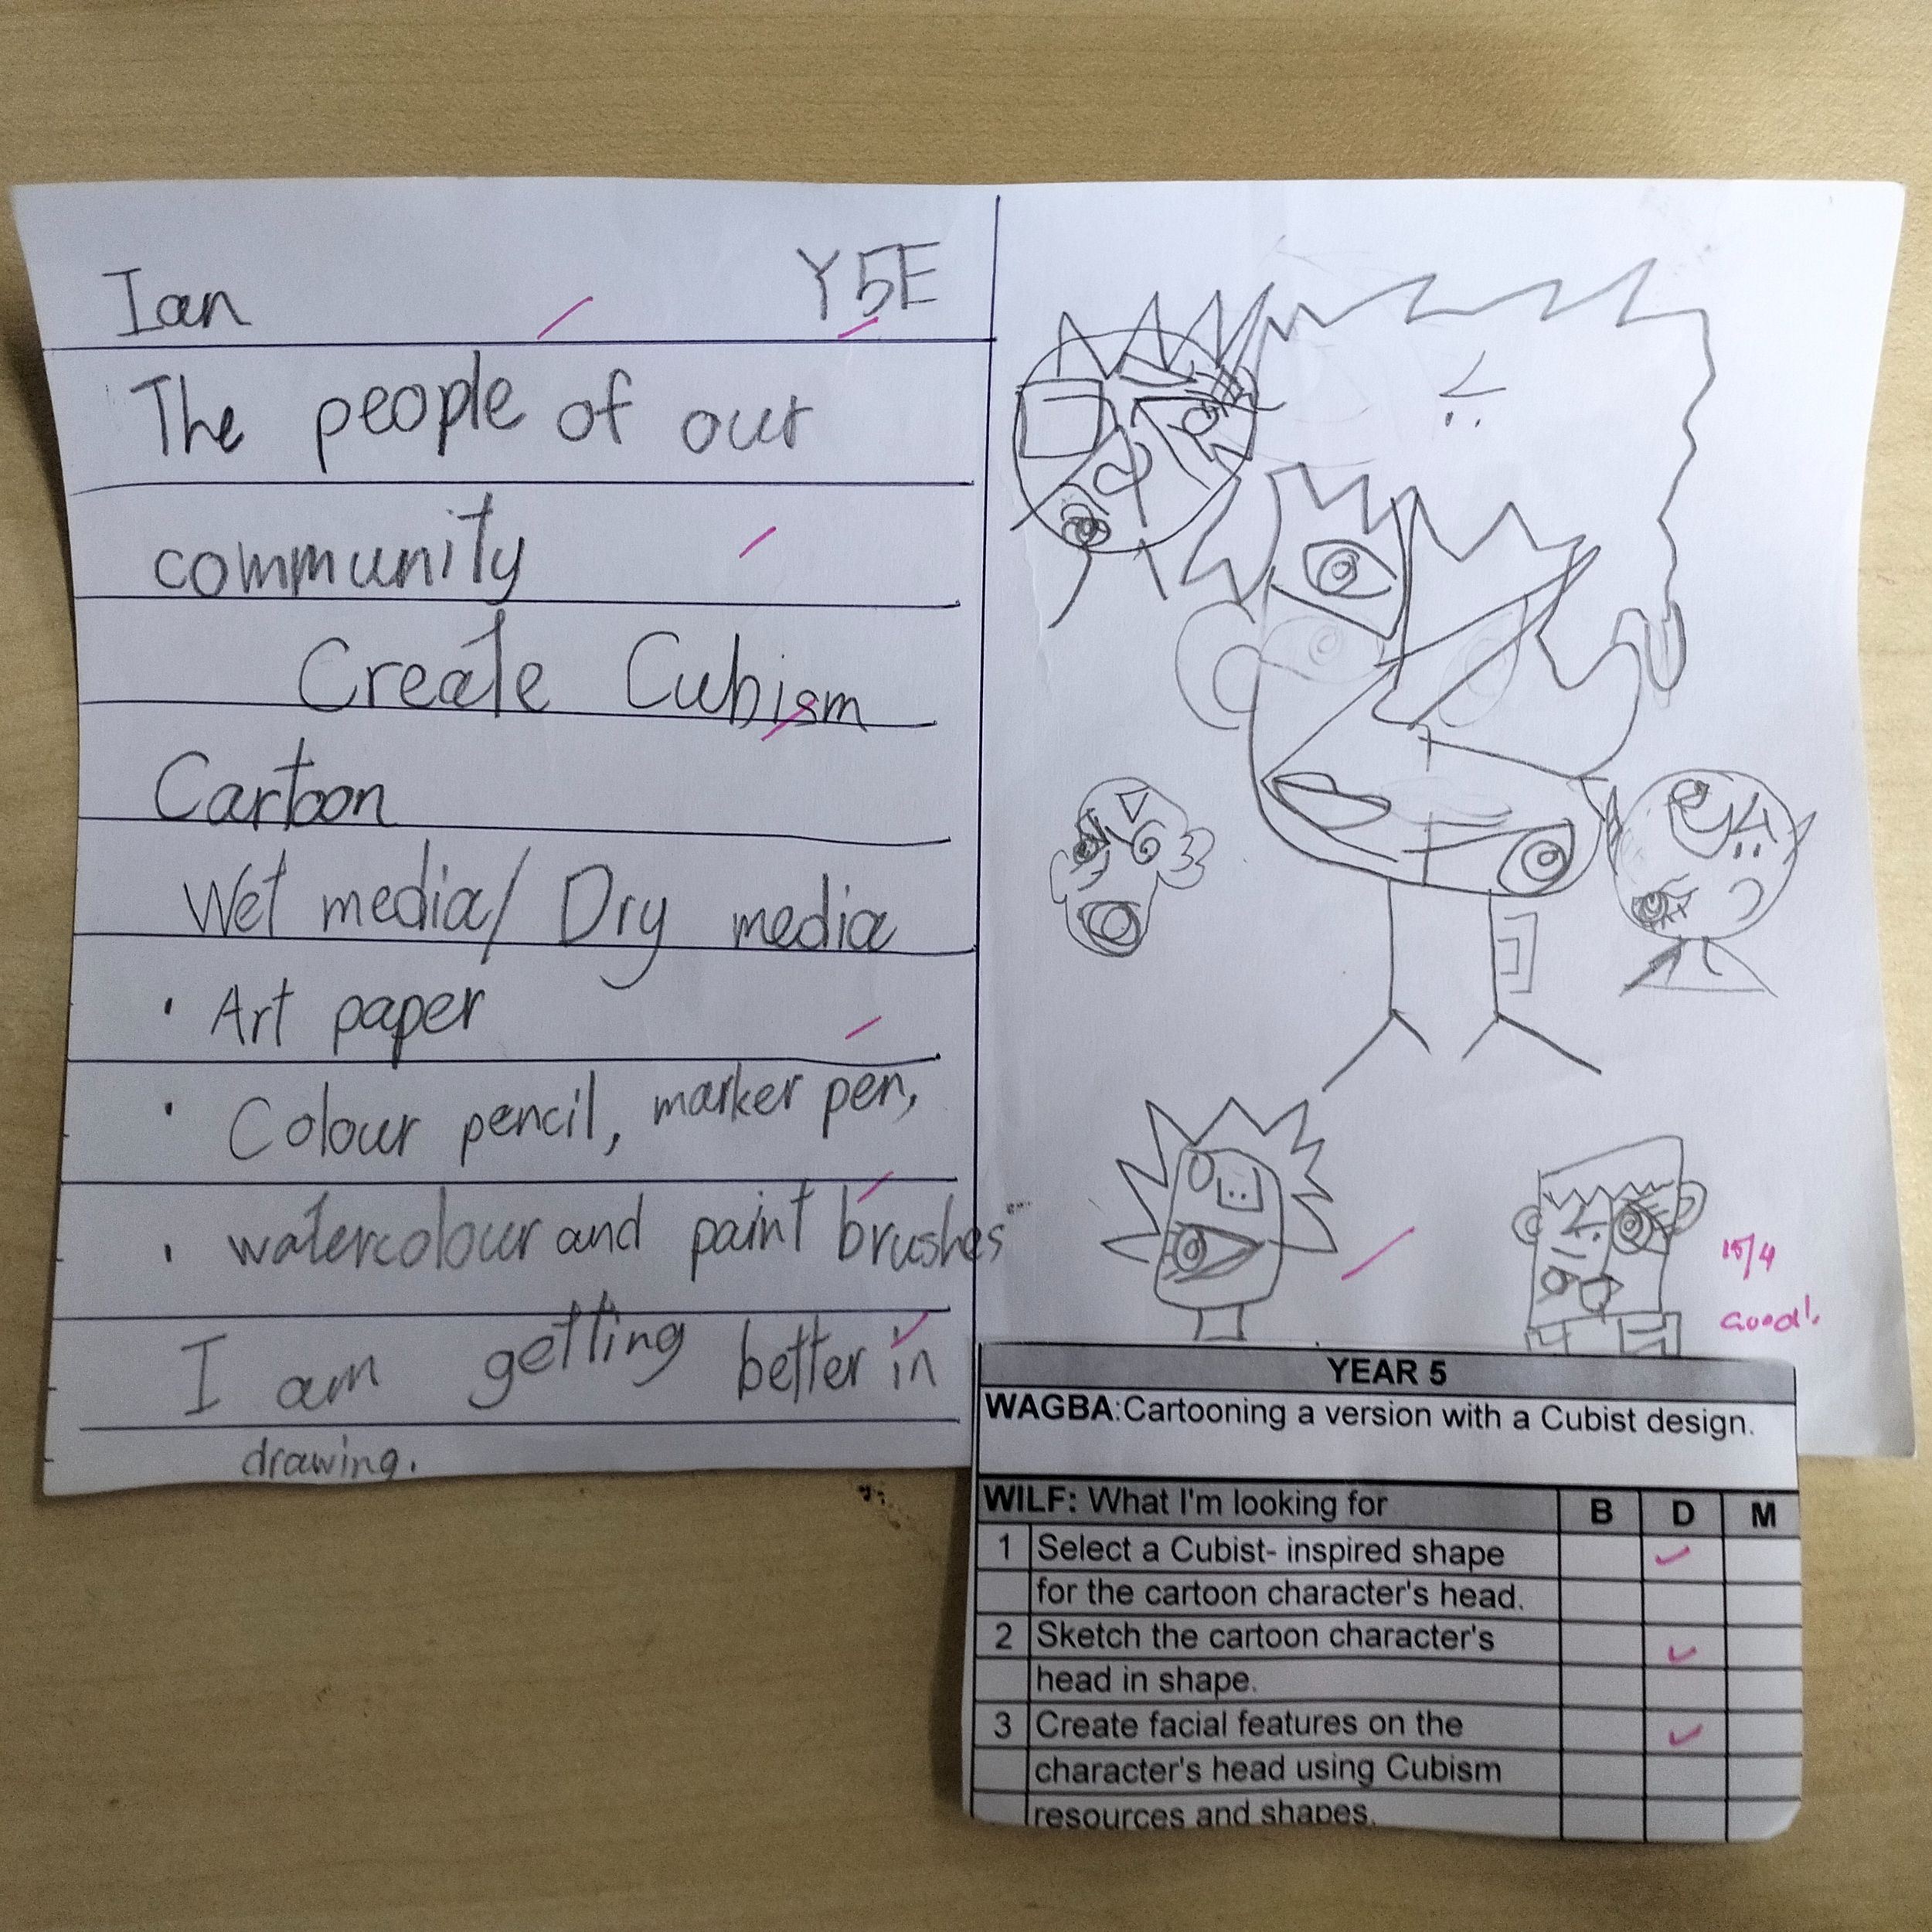 Ian Y5E
The people of our
community
Create Cubism
Cartoon
Wet media/ Dry media
· Art paper
· Colour pencil, marker pen,
· watercolour and paint brushes
I am getting better in
drawing.
15/4
Good!
YEAR 5
WAGBA:Cartooning a version with a Cubist design.
WILF: What I'm looking for B D M
1 Select a Cubist- inspired shape
for the cartoon character's head.
2 Sketch the cartoon character's
head in shape.
3 Create facial features on the
character's head using Cubism
resources and shapes.